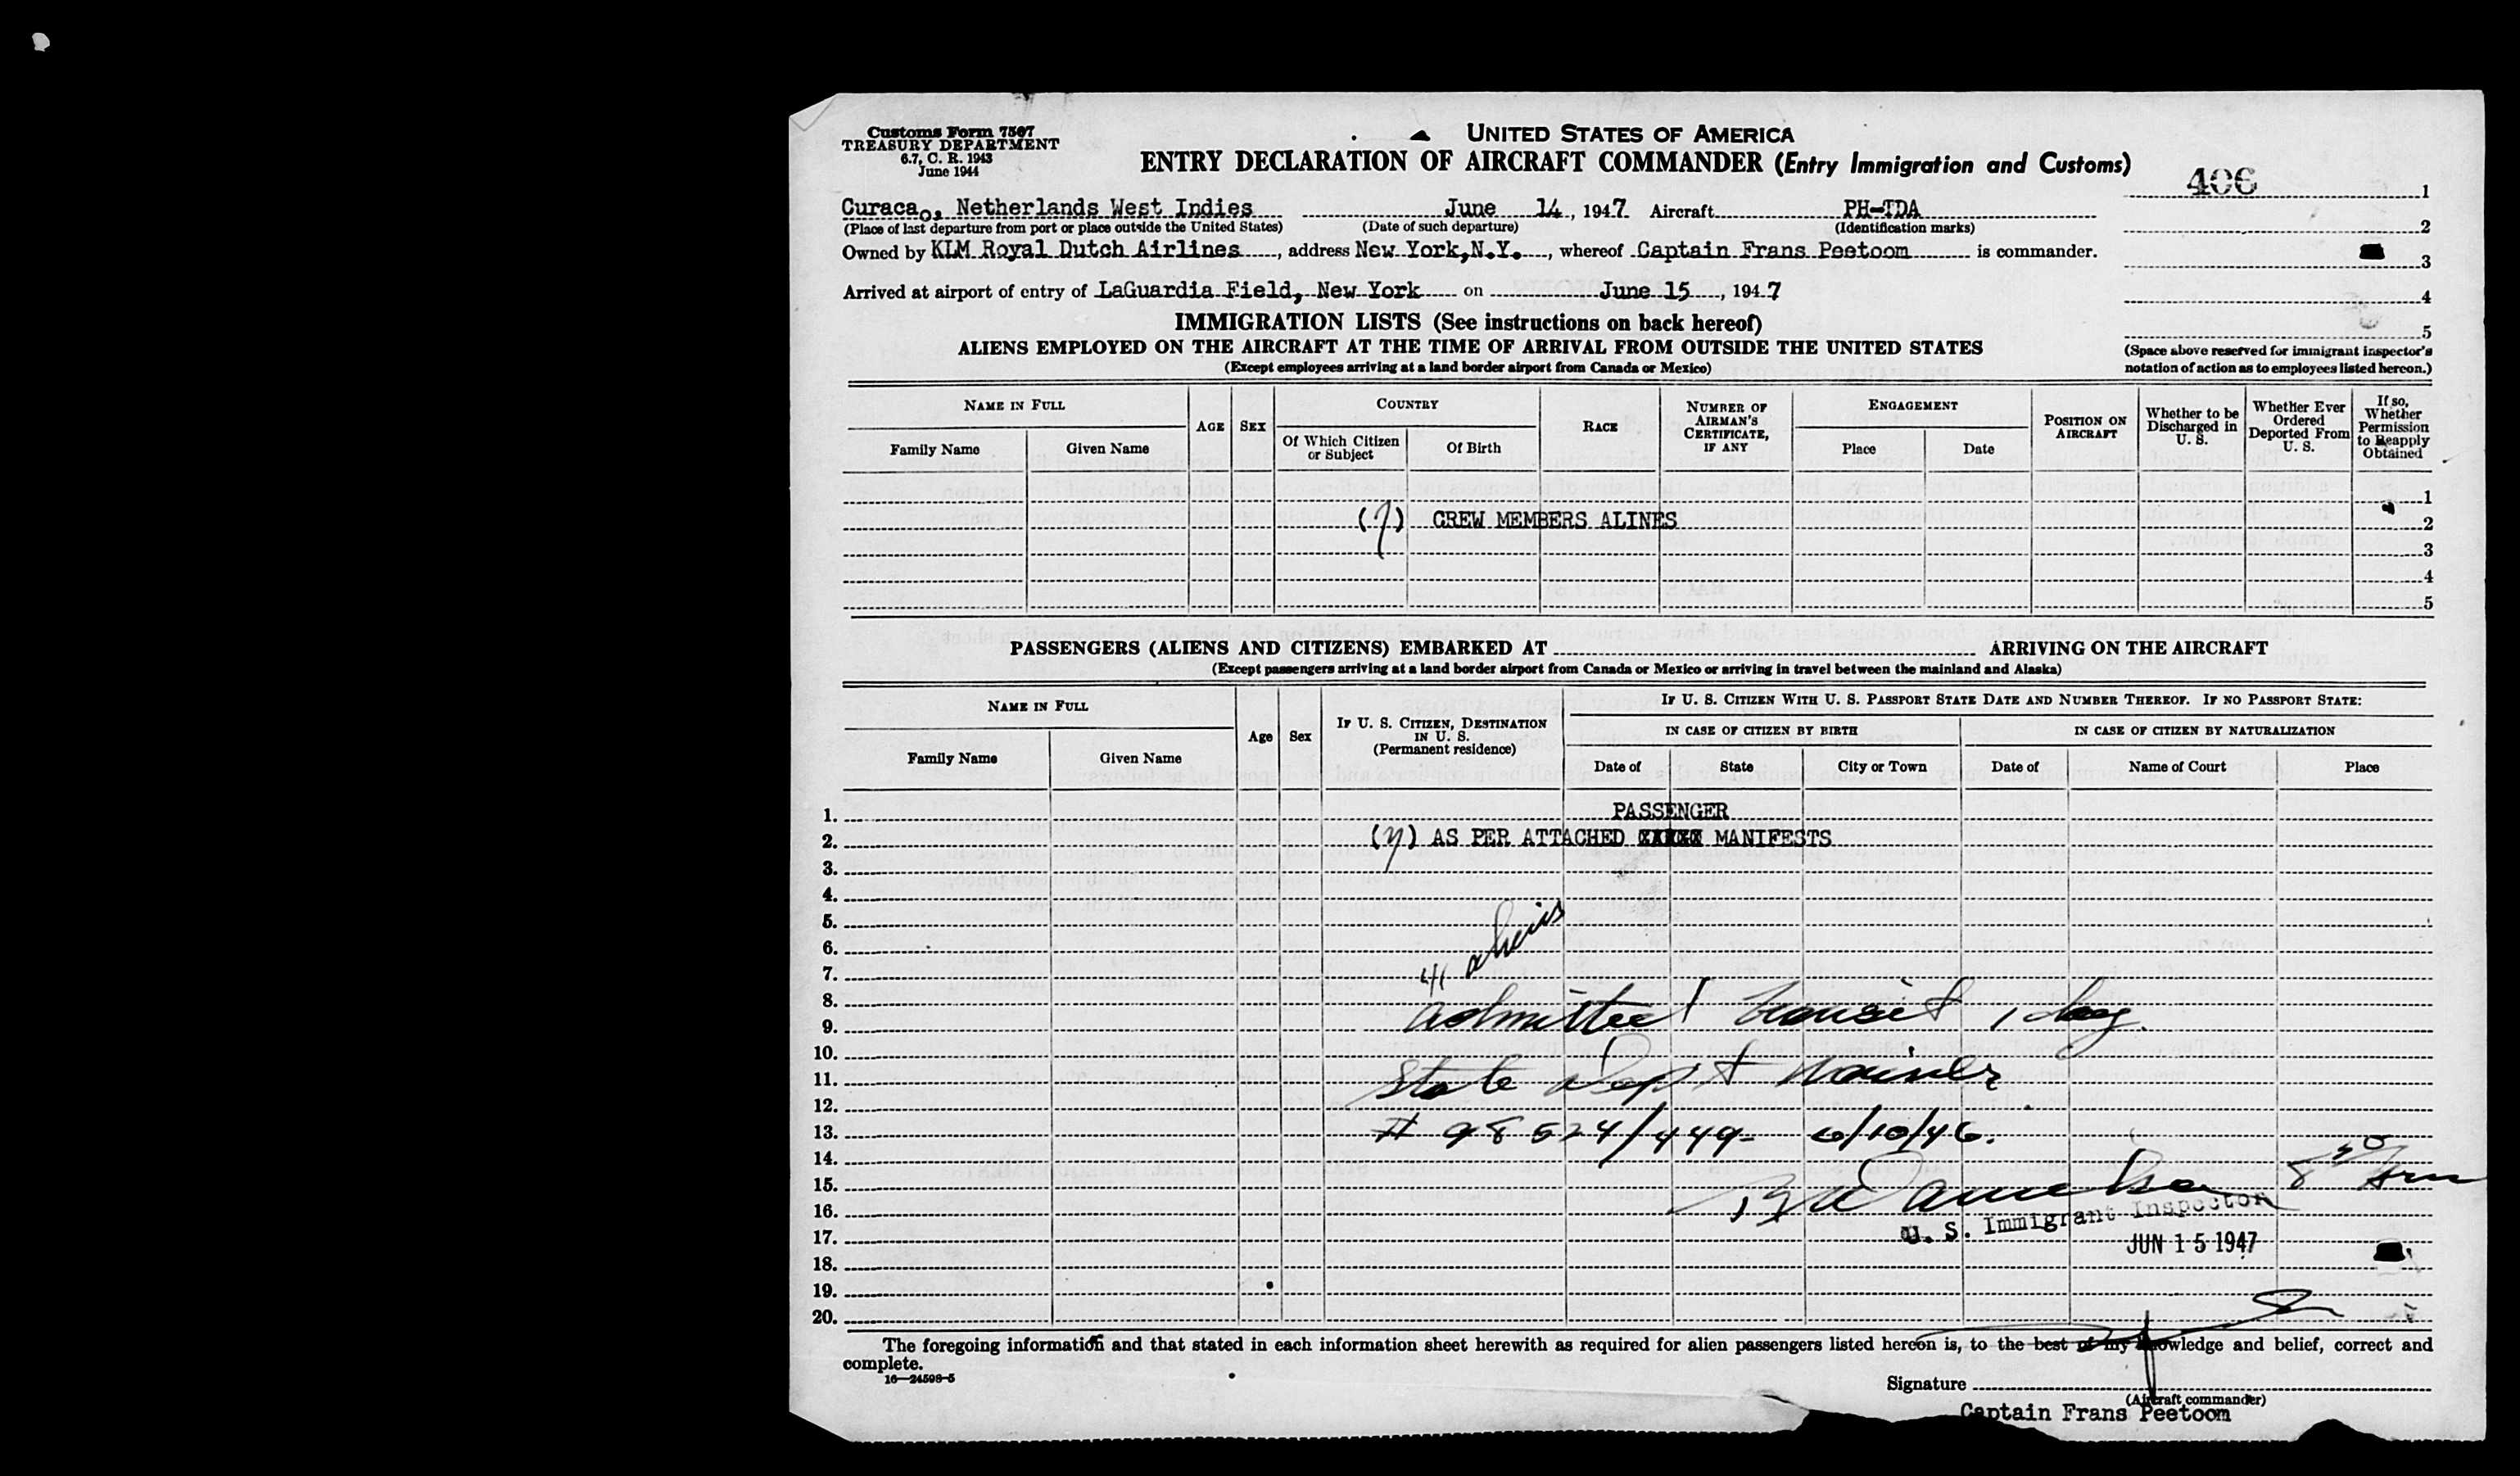 Customs Form 7507
TREASURY DEPARTMENT
6.7, C. R. 1943
June 1944
UNITED STATES OF AMERICA
ENTRY DECLARATION OF AIRCRAFT COMMANDER (Entry Immigration and Customs)
406 1
Curacao, Netherlands West Indies June 14, 1947 Aircraft PH-TDA
(Place of last departure from port or place outside the United States) (Date of such departure) (Identification marks)
2
Owned by KLM Royal Dutch Airlines, address New York, N.Y., whereof Captain Frans Peetoom is commander.
3
Arrived at airport of entry of LaGuardia Field, New York on June 15, 1947
4
IMMIGRATION LISTS (See instructions on back hereof)
5
ALIENS EMPLOYED ON THE AIRCRAFT AT THE TIME OF ARRIVAL FROM OUTSIDE THE UNITED STATES
(Except employees arriving at a land border airport from Canada or Mexico)
(Space above reserved for immigrant inspector's
notation of action as to employees listed hereon.)
NAME IN FULL
Family Name Given Name
AGE SEX
COUNTRY
Of Which Citizen or Subject Of Birth
RACE
NUMBER OF AIRMAN'S CERTIFICATE, IF ANY
ENGAGEMENT
Place Date
POSITION ON AIRCRAFT
Whether to be Discharged in U. S.
Whether Ever Ordered Deported From U. S.
If so, Whether Permission to Reapply Obtained
1
(7) CREW MEMBERS ALINES 2
3
4
5
PASSENGERS (ALIENS AND CITIZENS) EMBARKED AT ARRIVING ON THE AIRCRAFT
(Except passengers arriving at a land border airport from Canada or Mexico or arriving in travel between the mainland and Alaska)
NAME IN FULL
Family Name Given Name
Age Sex
IF U. S. CITIZEN, DESTINATION IN U. S.
(Permanent residence)
IF U. S. CITIZEN WITH U. S. PASSPORT STATE DATE AND NUMBER THEREOF. IF NO PASSPORT STATE:
IN CASE OF CITIZEN BY BIRTH IN CASE OF CITIZEN BY NATURALIZATION
Date of State City or Town Date of Name of Court Place
1. PASSENGER
2. AS PER ATTACHED MANIFESTS
3.
4.
5.
6. aliens
7.
8.
9. admitted transit 1 day.
10.
11. State Dept
12.
13. # 98524/449- 6/10/46.
14.
15.
16. U. S. Immigrant Inspector
17. JUN 15 1947
18.
19.
20.
The foregoing information and that stated in each information sheet herewith as required for alien passengers listed hereon is, to the best of my knowledge and belief, correct and
complete.
16—24598-5
Signature
(Aircraft commander)
Captain Frans Peetoom